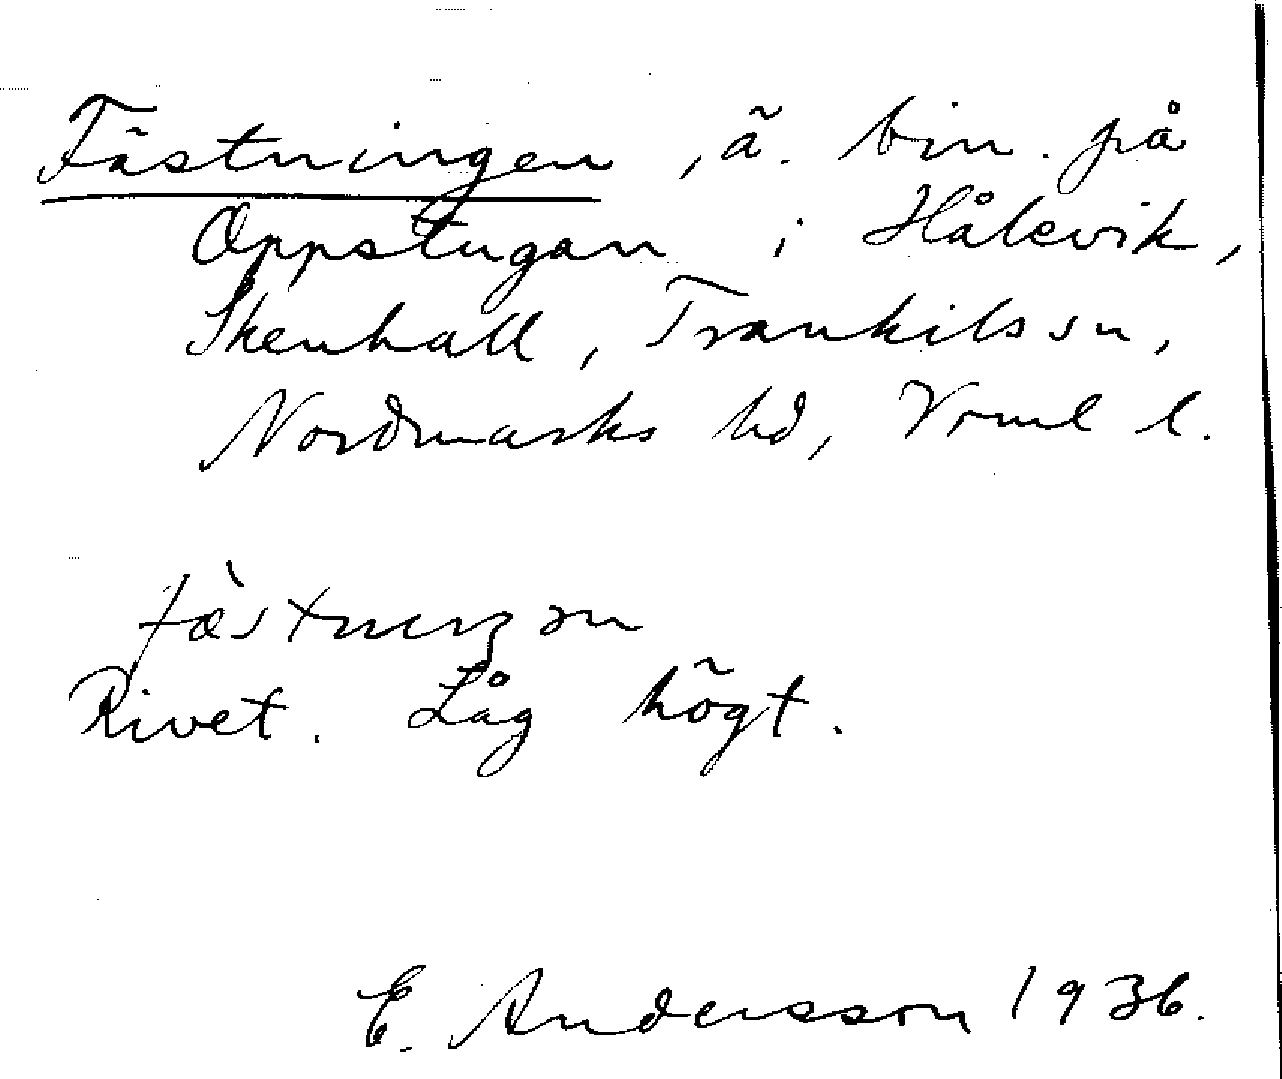 Fästningen, ä. bin. på
Oppstugan i Hålevik,
Skenhall, Trankils sn,
Nordmarks hd, Vrml l.
Rivet. Låg högt.
E. Andersson 1936.